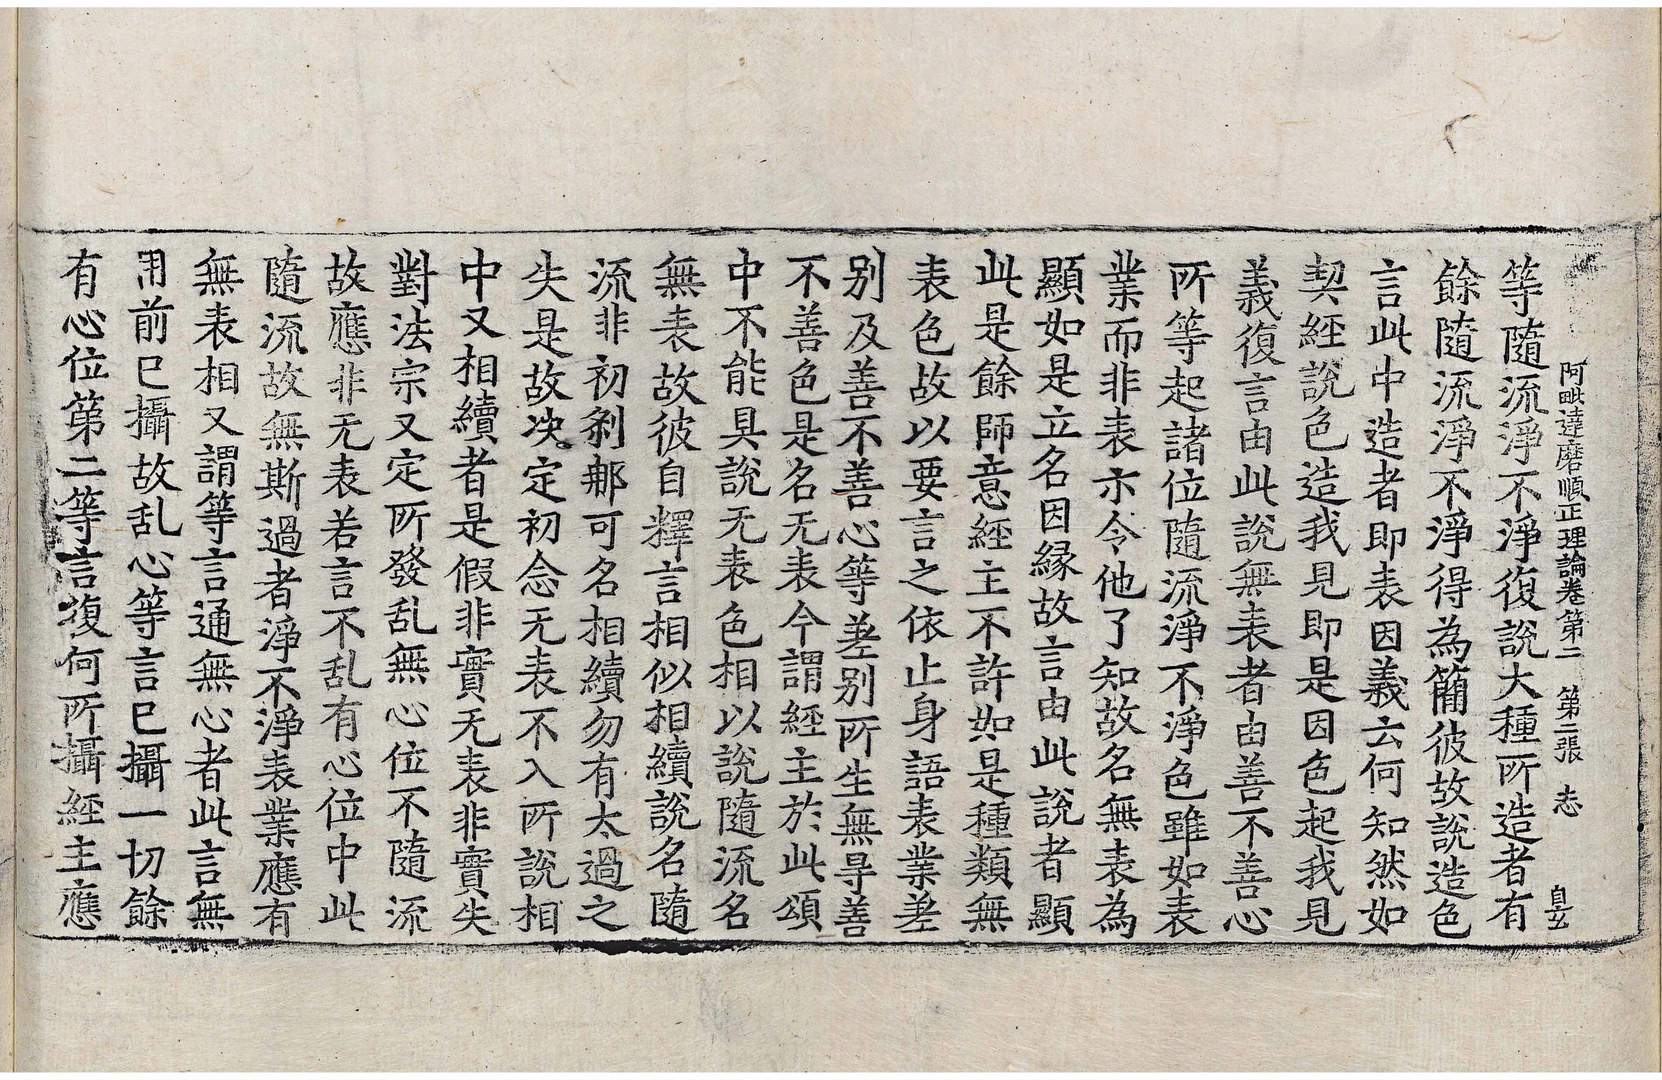 阿毗達磨順正理論卷第二 第二張 志
等隨流淨不淨復說大種所造者有
餘隨流淨不淨得為簡彼故說造色
言此中造者即表因義云何知然如
契經說色造我見即是因色起我見
義復言由此說無表者由善不善心
所等起諸位隨流淨不淨色雖如表
業而非表示令他了知故名無表為
顯如是立名因緣故言由此說者顯
此是餘師意經主不許如是種類無
表色故以要言之依止身語表業差
別及善不善心等差別所生無㝵善
不善色是名无表今謂經主於此頌
中不能具說无表色相以說隨流名
無表故彼自釋言相似相續說名隨
流非初剎那可名相續勿有太過之
失是故决定初念无表不入所說相
中又相續者是假非實无表非實失
對法宗又定所發乱無心位不隨流
故應非无表若言不乱有心位中此
隨流故無斯過者淨不淨表業應有
無表相又謂等言通無心者此言無
用前已攝故乱心等言已攝一切餘
有心位第二等言復何所攝經主應